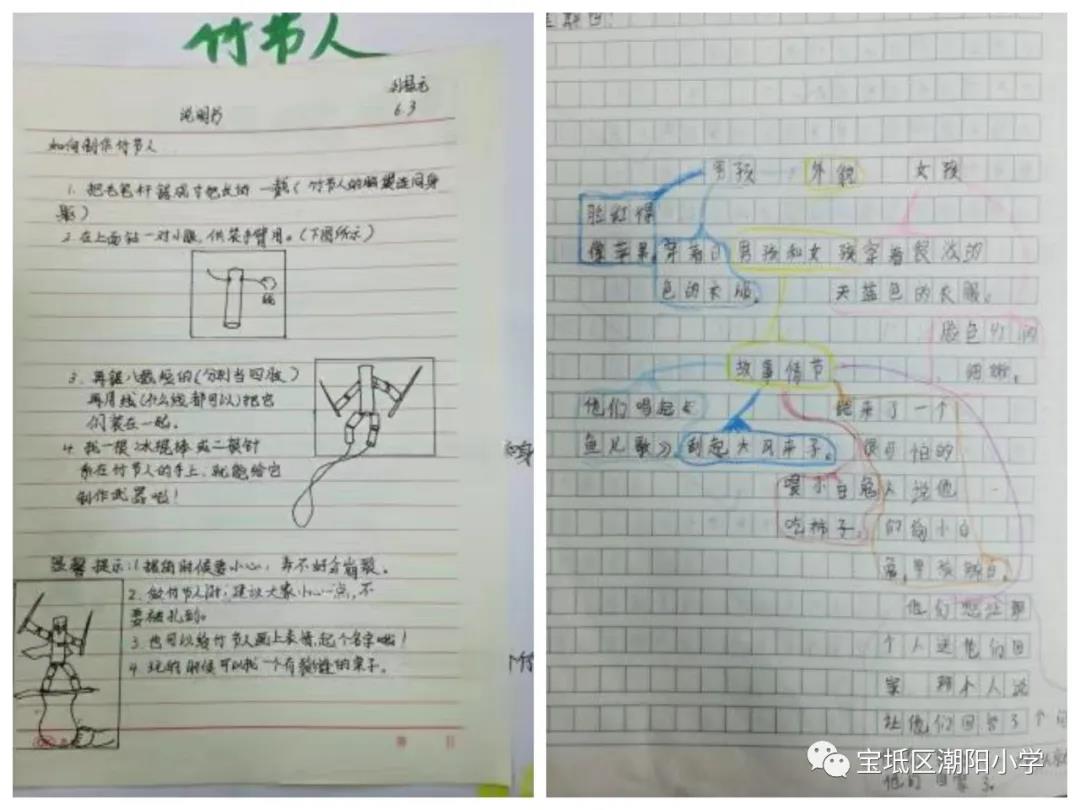 竹节人
6.3
说明书
如何制作竹节人
1. 把毛笔杆锯成寸把长的一截(竹节人的脑袋连同身
躯)
2. 在上面钻一对小眼,供装手臂用。(下图所示)
3. 再锯八截短的(分别当四肢)
再用线(什么线都可以)把它
们装在一起。
4. 找一根冰棍棒或二根针
系在竹节人的手上,就能给它
制作武器啦!
温馨提示:1 锯的时候要小心,弄不好会崩裂。
2. 做竹节人时,建议大家小心一点,不
要被扎到。
3. 也可以给竹节人画上表情,起个名字哦!
4. 玩的时候可以找一个有裂缝的桌子。
男孩 外貌 女孩
脸红得
像苹果 穿着 男孩和女孩穿着很淡的
色的衣服。 天蓝色的衣服。
脸色
故事情节
他们唱起
鱼儿歌》 刮起大风来了。 很可怕的
喂小白兔 人说他
吃柿子。 们给小白
兔,
他们
个人送他们回
家 那个人说
让他们回答了个问
宝坻区潮阳小学